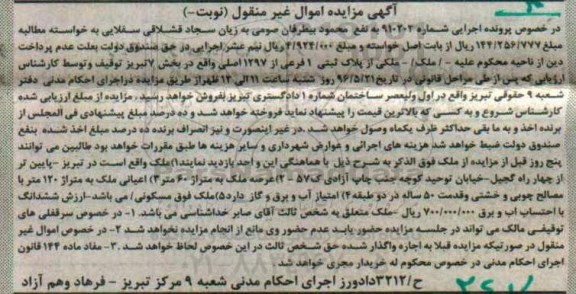 آگهی مزایده اموال غیر منقول (نوبت-)
در خصوص پرونده اجرایی شماره ۹۱۰۲۰۲ به نفع محمود بیطرفان صومی به زیان سجاد قشلاقی سفلایی به خواسته مطالبه
مبلغ ۱۴۴/۲۵۶/۷۷۷ ریال از بابت اصل خواسته و مبلغ ۴/۹۲۴/۰۰۰ ریال نیم عشر اجرایی در حق صندوق دولت بعلت عدم پرداخت
دین از ناحیه محکوم علیه - / ملک/ - ملکی از پلاک ثبتی ۱ فرعی از ۱۲۹۷ اصلی واقع در بخش ۷ تبریز توقیف و توسط کارشناس
ارزیابی که پس از طی مراحل قانونی در تاریخ ۹۶/۵/۲۱ روز شنبه ساعت ۱۱ الی ۱۲ ظهر از طریق مزایده دراجرای احکام مدنی دفتر
شعبه ۹ حقوقی تبریز واقع در اول ولیعصر ساختمان شماره ۱ دادگستری تبریز بفروش خواهد رسید . مزایده از مبلغ ارزیابی شده
کارشناس شروع و به کسی که بالاترین قیمت را پیشنهاد نماید فروخته خواهد شد و ده درصد مبلغ پیشنهادی فی المجلس از
برنده اخذ و به ما بقی حداکثر ظرف یکماه وصول خواهد شد .در غیر اینصورت و نیز انصراف برنده ده درصد مبلغ اخذ شده بنفع
صندوق دولت ضبط خواهد شد هزینه های اجرائی و عوارض شهرداری و سایر هزینه ها طبق مقررات خواهد بود طالبین می توانند
پنج روز قبل از مزایده از ملک فوق الذکر به شرح ذیل با هماهنگی این و احد بازدید نمایند۱) ملک واقع است در تبریز -پایین تر
از چهار راه گجیل-خیابان توحید کوچه سمت چاپ آزادی پلاک ۵۷ ۲) عرصه ملک به متراژ ۶۰ متر ۳) اعیانی ملک به متراژ ۱۲۰ متر با
مصالح چوبی و خشتی وقدمت ۵۰ ساله در دو طبقه۴) امتیاز آب و برق و گاز دارد۵)ملک فوق مسکونی/ می باشد-ارزش ششدانگ
با احتساب اب و برق ۷۰۰/۰۰۰/۰۰۰ ریال -ملک متعلق به شخص ثالث آقای صابر خداشناسی می باشد. ۱- در خصوص سرقفلی های
توقیفی مالک می تواند در جلسه مزایده حضور یابد عدم حضور وی مانع از انجام مزایده نخواهد شد ۲- در خصوص اموال غیر
منقول در صورتیکه مزایده قبلا به اجاره واگذار شده حق شخص ثالث در این خصوص لحاظ خواهد شد .۳- مفاد ماده ۱۴۴ قانون
اجرای مدنی در خصوص محکوم له خریدار مجری خواهد شد
ح/۳۲۱۲ دادورز اجرای احکام مدنی شعبه ۹ مرکز تبریز - فرهاد وهم آزاد